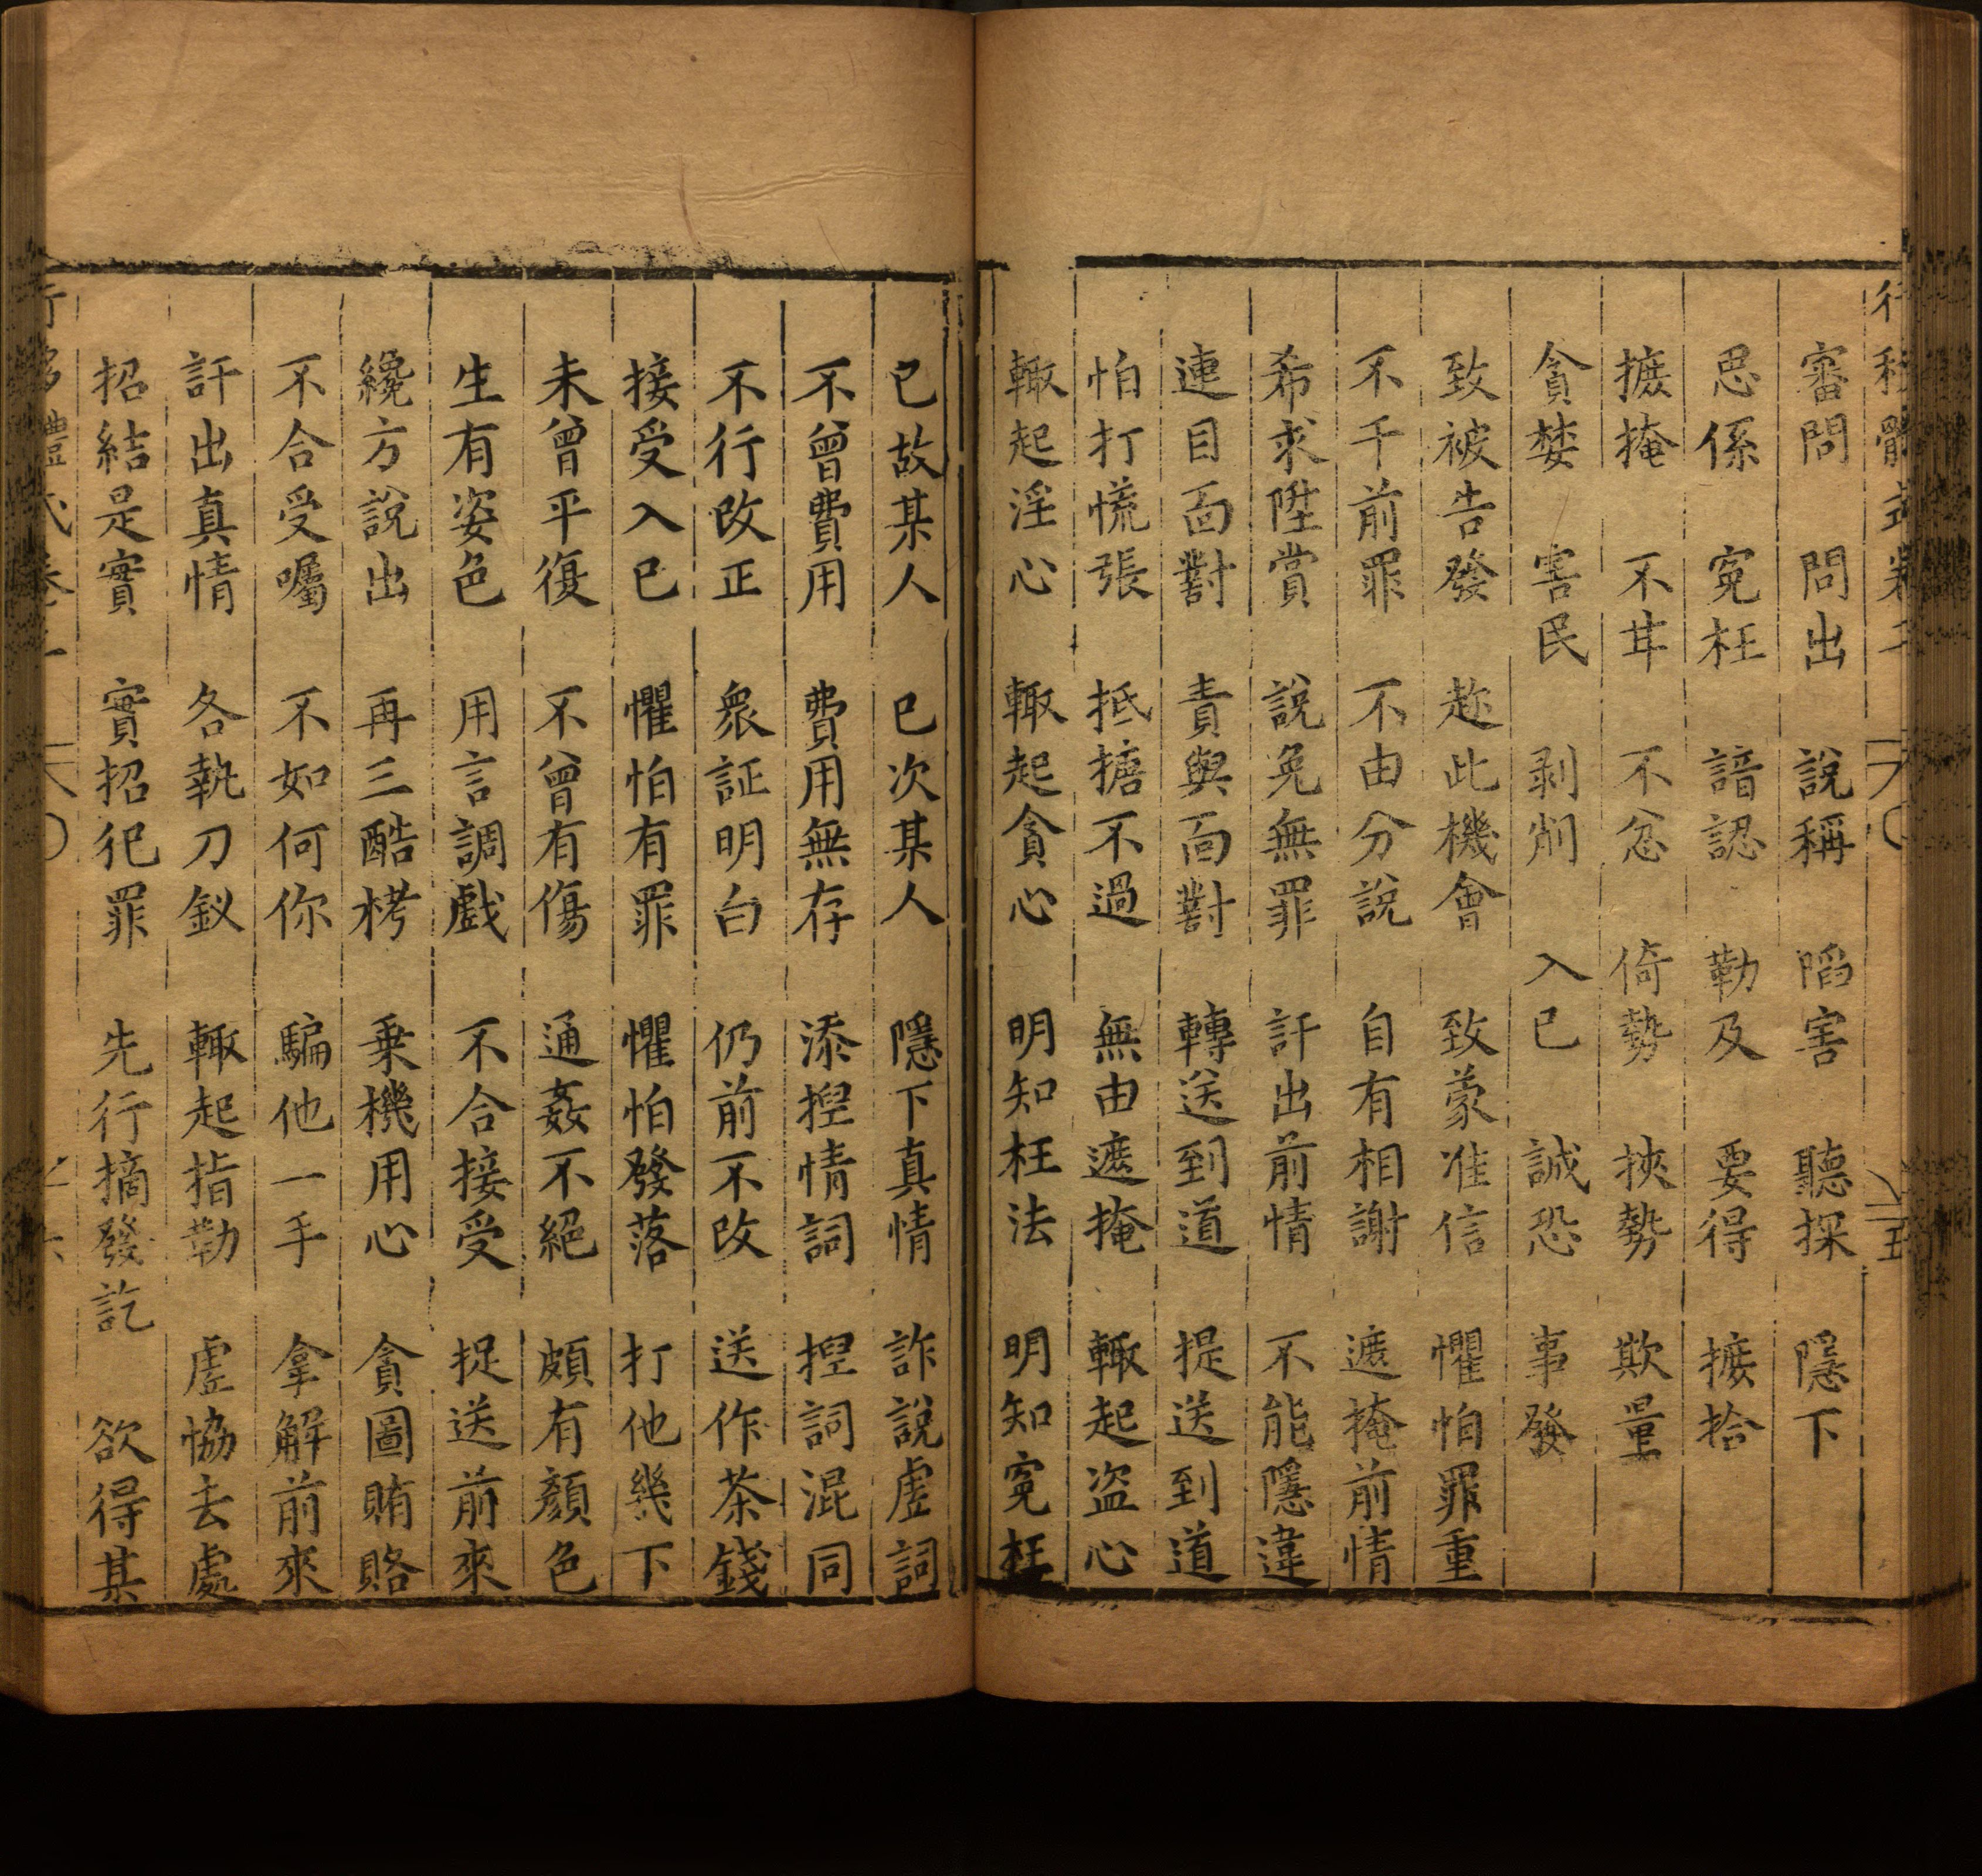 審問　問出　說稱　陷害　聽採　隱下
思係　冤枉　諳認　勒及　要得　摭拾
摭掩　不甘　不忿　倚勢　挾勢　欺量
貪婪　害民　剥削　入已　誠恐　事發
致被告發　趂此機會　致蒙准信　懼怕罪重
不干前罪　不由分說　自有相謝　遮掩前情
希求陞賞　說免無罪　訐出前情　不能隱違
連目面對　責與面對　轉送到道　提送到道
怕打慌張　抵搪不過　無由遮掩　輙起盗心
輙起淫心　輙起貪心　明知枉法　明知冤枉
已故某人　已次某人　隱下真情　詐說虛詞
不曾費用　費用無存　添揑情詞　揑詞混同
不行改正　衆証明白　仍前不改　送作茶錢
接受入已　懼怕有罪　懼怕發落　打他幾下
未曾平復　不曾有傷　通姦不絕　頗有顏色
生有姿色　用言調戲　不合接受　捉送前來
纔方說出　再三酷栲　乗機用心　貪圖賄賂
不合受囑　不如何你　騙他一手　拿解前來
訐出真情　各執刀釵　輙起掯勒　虛恊去處
招結是實　實招犯罪　先行摘發訖　欲得某